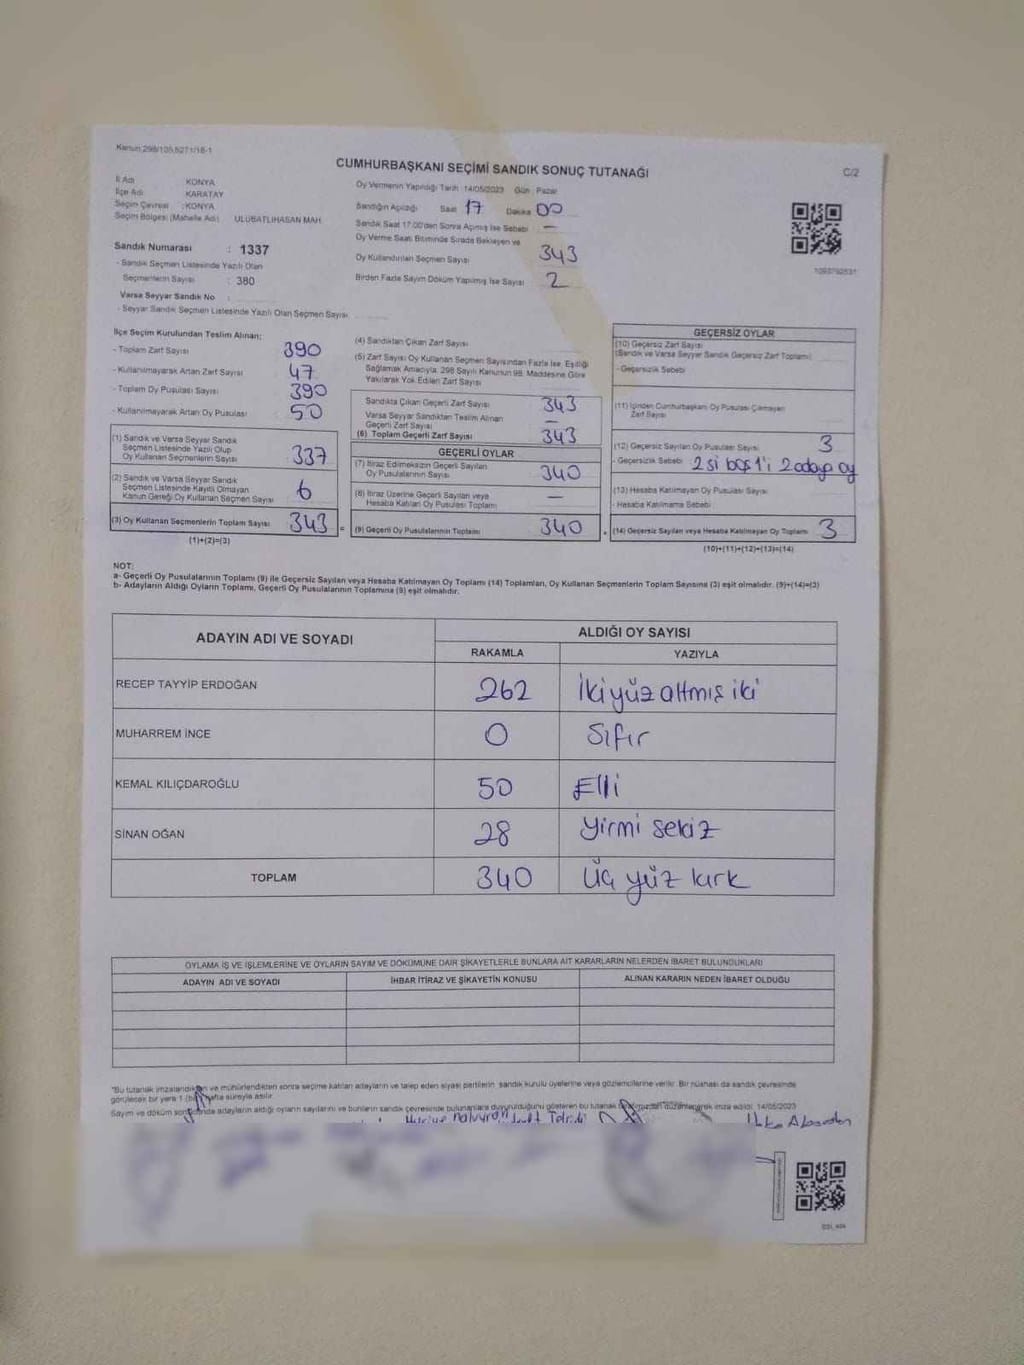 Kanun 298/105,5271/16-1
CUMHURBAŞKANI SEÇİMİ SANDIK SONUÇ TUTANAĞI
C/2
İl Adı KONYA
İlçe Adı KARATAY
Seçim Çevresi :KONYA
Seçim Bölgesi (Mahalle Adı) ULUBATLIHASAN MAH.
Sandık Numarası : 1337
- Sandık Seçmen Listesinde Yazılı Olan
Seçmenlerin Sayısı : 380
Varsa Seyyar Sandık No :
- Seyyar Sandık Seçmen Listesinde Yazılı Olan Seçmen Sayısı
Oy Vermenin Yapıldığı Tarih :14/05/2023 Gün : Pazar
Sandığın Açıldığı Saat 17 Dakika 00
Sandık Saat 17.00'den Sonra Açılmış İse Sebebi —
Oy Verme Saati Bitiminde Sırada Bekleyen ve
Oy Kullandırılan Seçmen Sayısı 343
Birden Fazla Sayım Döküm Yapılmış İse Sayısı 2
1093792531
İlçe Seçim Kurulundan Teslim Alınan:
- Toplam Zarf Sayısı 390
- Kullanılmayarak Artan Zarf Sayısı 47
- Toplam Oy Pusulası Sayısı 390
- Kullanılmayarak Artan Oy Pusulası 50
(1) Sandık ve Varsa Seyyar Sandık
Seçmen Listesinde Yazılı Olup
Oy Kullanan Seçmenlerin Sayısı 337
(2) Sandık ve Varsa Seyyar Sandık
Seçmen Listesinde Kayıtlı Olmayan
Kanun Gereği Oy Kullanan Seçmen Sayısı 6
(3) Oy Kullanan Seçmenlerin Toplam Sayısı 343 =
(1)+(2)=(3)
(4) Sandıktan Çıkan Zarf Sayısı
(5) Zarf Sayısı Oy Kullanan Seçmen Sayısından Fazla İse, Eşitliği
Sağlamak Amacıyla, 298 Sayılı Kanunun 98. Maddesine Göre
Yakılarak Yok Edilen Zarf Sayısı
Sandıkta Çıkan Geçerli Zarf Sayısı 343
Varsa Seyyar Sandıktan Teslim Alınan
Geçerli Zarf Sayısı —
(6) Toplam Geçerli Zarf Sayısı 343
GEÇERLİ OYLAR
(7) İtiraz Edilmeksizin Geçerli Sayılan
Oy Pusulalarının Sayısı 340
(8) İtiraz Üzerine Geçerli Sayılan veya
Hesaba Katılan Oy Pusulası Toplamı —
(9) Geçerli Oy Pusulalarının Toplamı 340 +
GEÇERSİZ OYLAR
(10) Geçersiz Zarf Sayısı
(Sandık ve Varsa Seyyar Sandık Geçersiz Zarf Toplamı)
- Geçersizlik Sebebi
(11) İçinden Cumhurbaşkanı Oy Pusulası Çıkmayan
Zarf Sayısı
(12) Geçersiz Sayılan Oy Pusulası Sayısı 3
- Geçersizlik Sebebi 2 si boş 1'i 2 adaya oy
(13) Hesaba Katılmayan Oy Pusulası Sayısı
- Hesaba Katılmama Sebebi
(14) Geçersiz Sayılan veya Hesaba Katılmayan Oy Toplamı 3
(10)+(11)+(12)+(13)=(14)
NOT:
a- Geçerli Oy Pusulalarının Toplamı (9) ile Geçersiz Sayılan veya Hesaba Katılmayan Oy Toplamı (14) Toplamları, Oy Kullanan Seçmenlerin Toplam Sayısına (3) eşit olmalıdır. (9)+(14)=(3)
b- Adayların Aldığı Oyların Toplamı, Geçerli Oy Pusulalarının Toplamına (9) eşit olmalıdır.
ADAYIN ADI VE SOYADI
ALDIĞI OY SAYISI
RAKAMLA YAZIYLA
RECEP TAYYİP ERDOĞAN 262 İki yüz altmış iki
MUHARREM İNCE 0 Sıfır
KEMAL KILIÇDAROĞLU 50 Elli
SİNAN OĞAN 28 Yirmi sekiz
TOPLAM 340 Üç yüz kırk
OYLAMA İŞ VE İŞLEMLERİNE VE OYLARIN SAYIM VE DÖKÜMÜNE DAİR ŞİKAYETLERLE BUNLARA AİT KARARLARIN NELERDEN İBARET BULUNDUKLARI
ADAYIN ADI VE SOYADI İHBAR İTİRAZ VE ŞİKAYETİN KONUSU ALINAN KARARIN NEDEN İBARET OLDUĞU
"Bu tutanak imzalandıktan ve mühürlendikten sonra seçime katılan adayların ve talep eden siyasi partilerin sandık kurulu üyelerine veya gözlemcilerine verilir. Bir nüshası da sandık çevresinde
görülecek bir yere 1 (bir) hafta süreyle asılır.
Sayım ve döküm sonucunda adayların aldığı oyların sayılarını ve bunların sandık çevresinde bulunanlara duyurulduğunu gösteren bu tutanak tarafımızdan düzenlenerek imza edildi. 14/05/2023